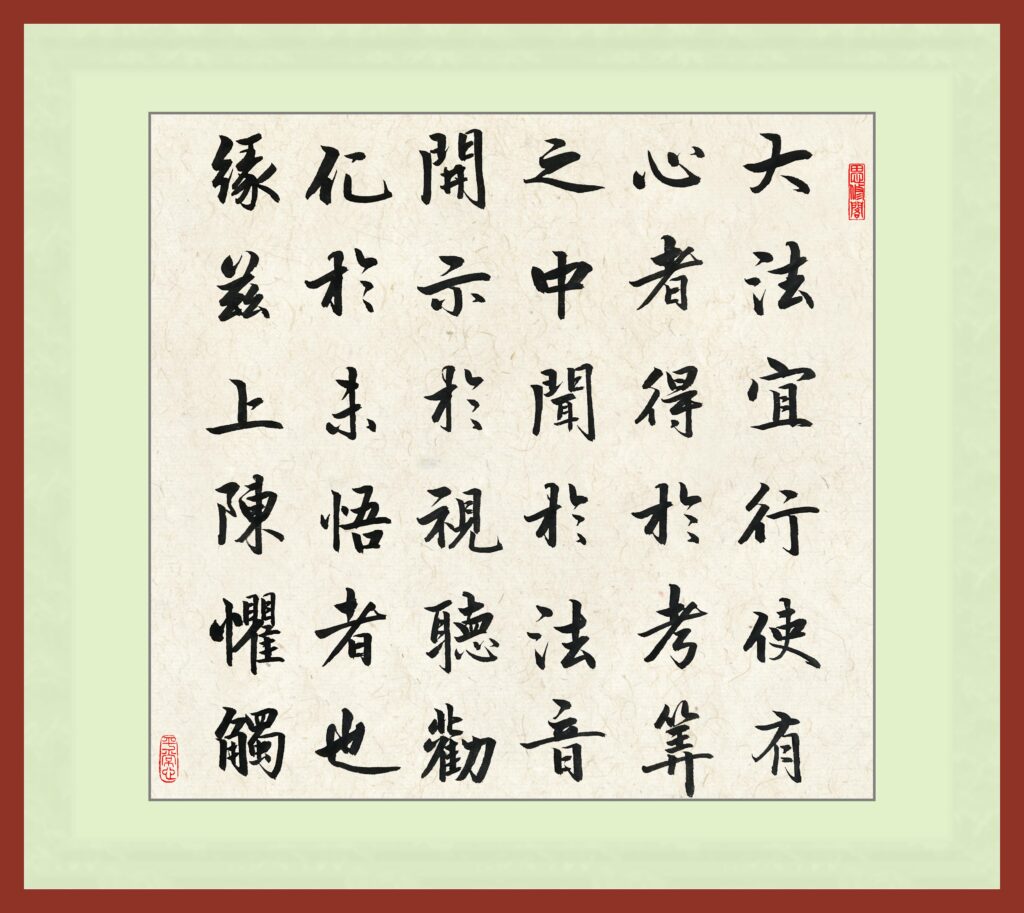 大法宜行使有
心者得於考筭
之中聞於法音
開示於視聽勸
化於未悟者也
緣茲上陳懼觸
思修閣
平常心